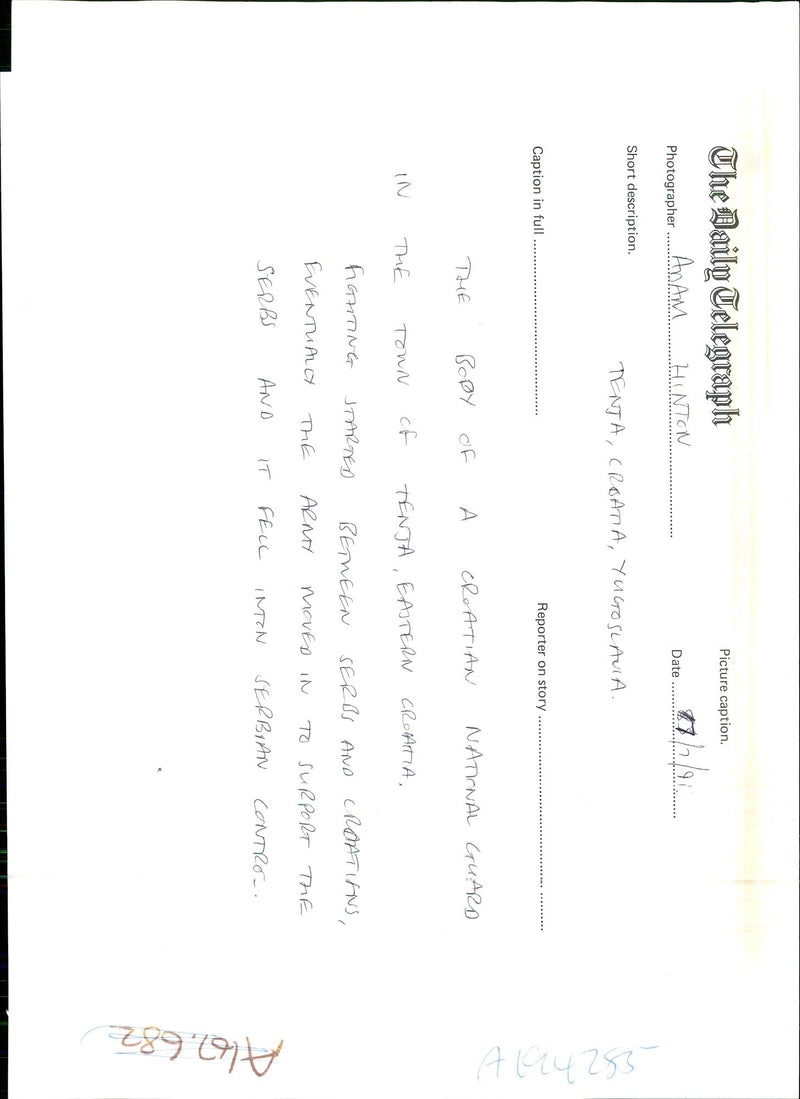 The Daily Telegraph
Picture caption.
Photographer ADAM HINTON
Date /7/91
Short description.
TENJA, CROATIA, YUGOSLAVIA.
Caption in full
Reporter on story
THE BODY OF A CROATIAN NATIONAL GUARD
IN THE TOWN OF TENJA, EASTERN CROATIA.
FIGHTING STARTED BETWEEN SERBS AND CROATIANS,
EVENTUALLY THE ARMY MOVED IN TO SUPPORT THE
SERBS AND IT FELL INTON SERBIAN CONTROL.
A167.682